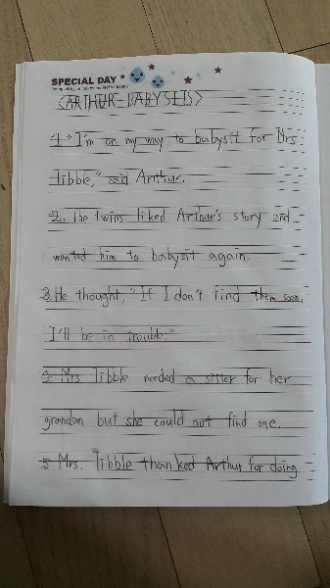 SPECIAL DAY
<ARTHUR-BABYSITS>
1. "I'm on my way to babysit for Mrs
Tibble," said Arthur.
2. The twins liked Arthur's story and
wanted him to babysit again.
3. He thought, "If I don't find them soon,
I'll be in trouble."
4. Mrs Tibble needed a sitter for her
grandson but she could not find one.
5 Mrs. Tibble thanked Arthur for doing